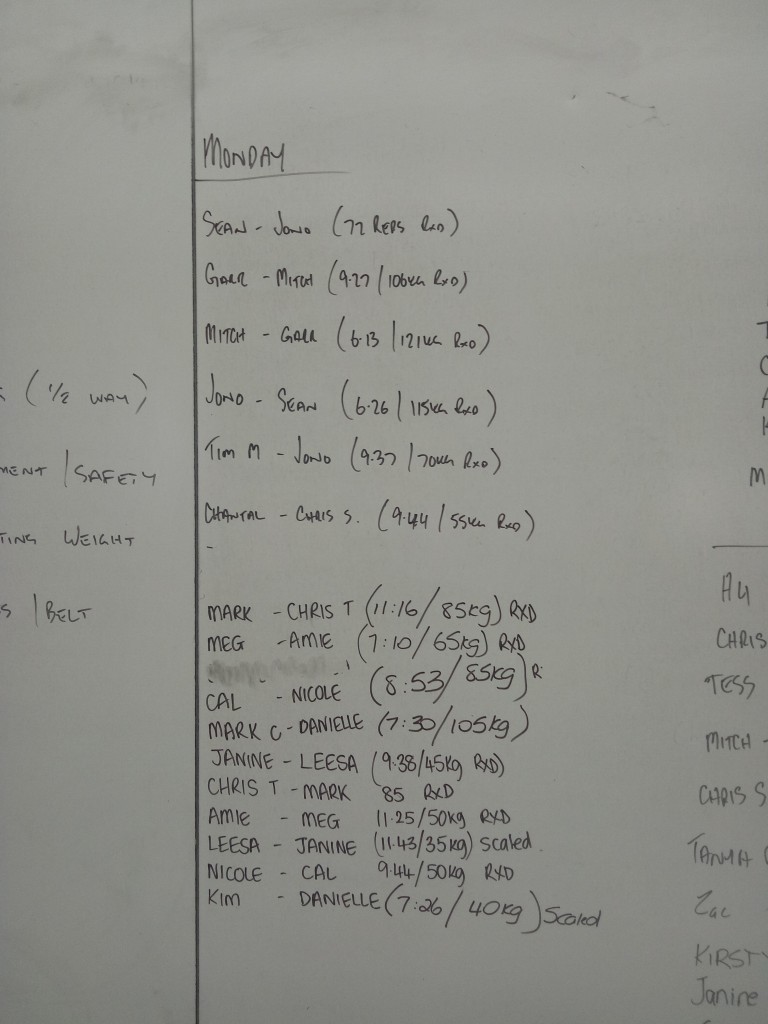 MONDAY
SEAN - JONO (72 REPS RXD)
GARR - MITCH (9.27 / 106KG RXD)
MITCH - GARR (6.13 / 121KG RXD)
JONO - SEAN (6.26 / 115KG RXD)
TIM M - JONO (9.37 / 70KG RXD)
CHANTAL - CHRIS S. (9.44 / 55KG RXD)
-
MARK - CHRIS T (11:16/85kg) RXD
MEG - AMIE (7:10/65kg) RXD
CAL - NICOLE (8:53/85kg) R
MARK C - DANIELLE (7:30/105kg)
JANINE - LEESA (9.38/45kg RXD)
CHRIS T - MARK 85 RXD
AMIE - MEG 11.25/50kg RXD
LEESA - JANINE (11.43/35kg) scaled.
NICOLE - CAL 9.44/50kg RXD
KIM - DANIELLE (7:26/40kg) Scaled
(1/2 WAY)
MENT / SAFETY
TING WEIGHT
S / BELT
M
CHRIS
TESS
MITCH -
CHRIS S
TANYA
Zac
KIRSTY
Janine